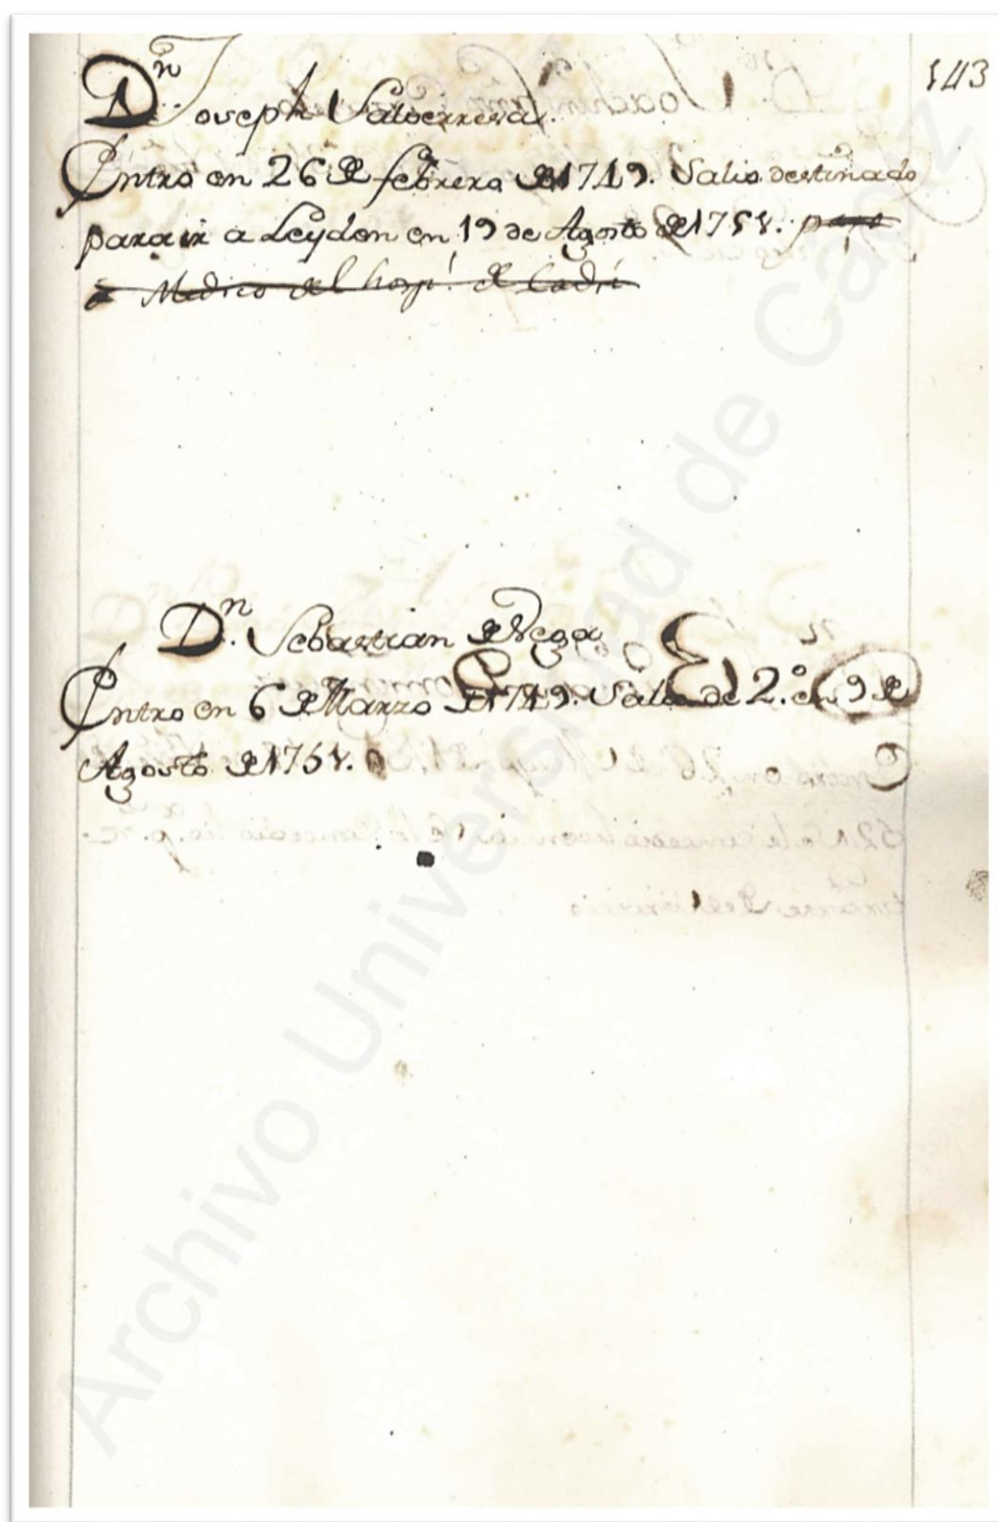 143
Dn. Joseph Salvarresa.
Entro en 26 de febrero de 1749. Salio destinado
para ir a Leydon en 19 de Agosto de 1751. para
Medico del hospl. de Cadiz
Dn. Sebastian de Vega
Entro en 6 de Marzo de 1749. Salio de 2.o en 9 de
Agosto de 1751.
Archivo Universidad de Cadiz